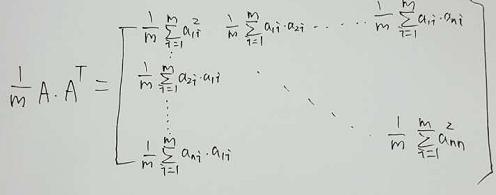 1/m ∑_{i=1}^{m} a_{1i}^2 1/m ∑_{i=1}^{m} a_{1i}·a_{2i} ······ 1/m ∑_{i=1}^{m} a_{1i}·a_{ni}
1/m A·A^T = 1/m ∑_{i=1}^{m} a_{2i}·a_{1i}
1/m ∑_{i=1}^{m} a_{ni}·a_{1i} 1/m ∑_{i=1}^{m} a_{nn}^2